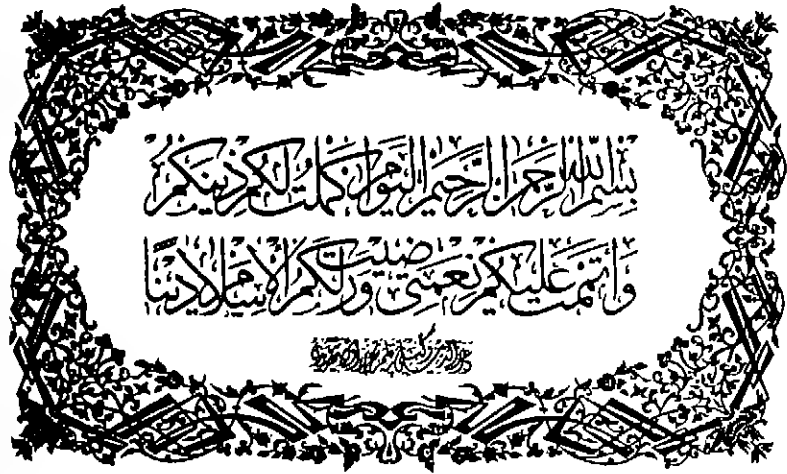 بِسْمِ اللهِ الرَّحْمنِ الرَّحِيمِ الْيَوْمَ اَكْمَلْتُ لَكُمْ دِينَكُمْ
وَاَتْمَمْتُ عَلَيْكُمْ نِعْمَتِى وَرَضِيتُ لَكُمُ الْاِسْلَامَ دِينًا